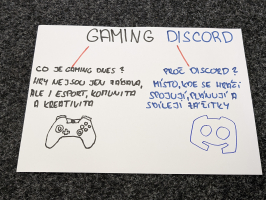 GAMING DISCORD
CO JE GAMING DNES?
HRY NEJSOU JEN ZÁBAVA,
ALE I ESPORT, KOMUNITA
A KREATIVITA
PROČ DISCORD?
MÍSTO, KDE SE HRÁČI
SPOJUJÍ, PLÁNUJÍ A
SDÍLEJÍ ZÁŽITKY